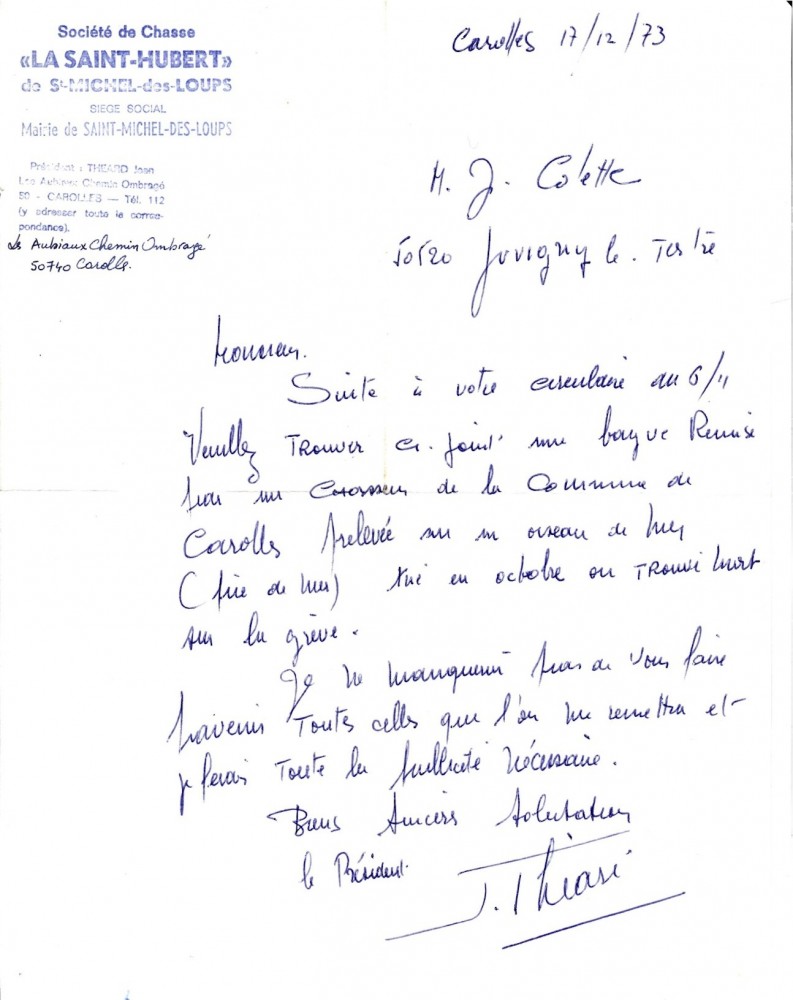 Société de Chasse
«LA SAINT-HUBERT»
de St-MICHEL-des-LOUPS
SIEGE SOCIAL
Mairie de SAINT-MICHEL-DES-LOUPS
Président : THEARD Jean
Les Aubiaux Chemin Ombragé
50 - CAROLLES — Tél. 112
(y adresser toute la corres-
pondance).
Les Aubiaux Chemin Ombragé
50740 Carolles.
Carolles 17/12/73
M. J. Colette
50520 Juvigny le. Tertre
Monsieur.
Suite à votre circulaire du 6/11
Veuillez Trouver ci-joint une bague Remise
par un Chasseur de la Commune de
Carolles prelevée sur un oiseau de Mer
(pie de Mer) tué en octobre ou Trouvé Mort
sur la grève.
Je ne manquerai pas de Vous faire
parvenir Toutes celles que l'on me remettra et
je ferai Toute la publicité Nécessaire.
Biens Sincères Salutations
le Président.
J. Théard